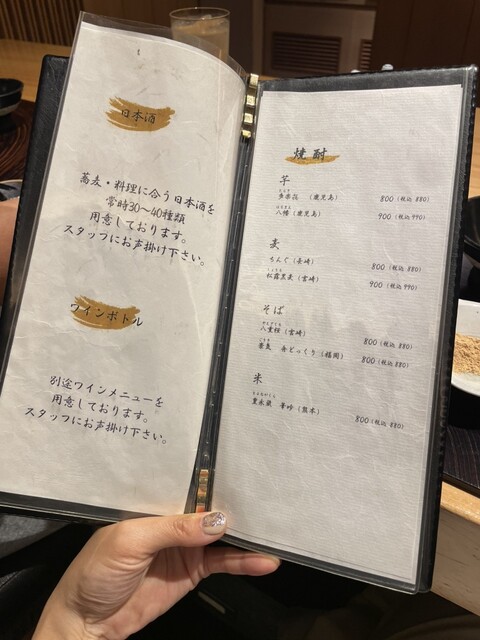 日本酒
蕎麦・料理に合う日本酒を
常時30〜40種類
用意しております。
スタッフにお声掛け下さい。
ワインボトル
別途ワインメニューを
用意しております。
スタッフにお声掛け下さい。
焼酎
芋
(鹿児島) 800(税込 880)
八幡(鹿児島) 900(税込 990)
麦
ちんぐ(長崎) 800(税込 880)
松露黒麦(宮崎) 900(税込 990)
そば
八重桜(宮崎) 800(税込 880)
赤とっくり(福岡) 800(税込 880)
米
豊永蔵 華吟(熊本) 800(税込 880)